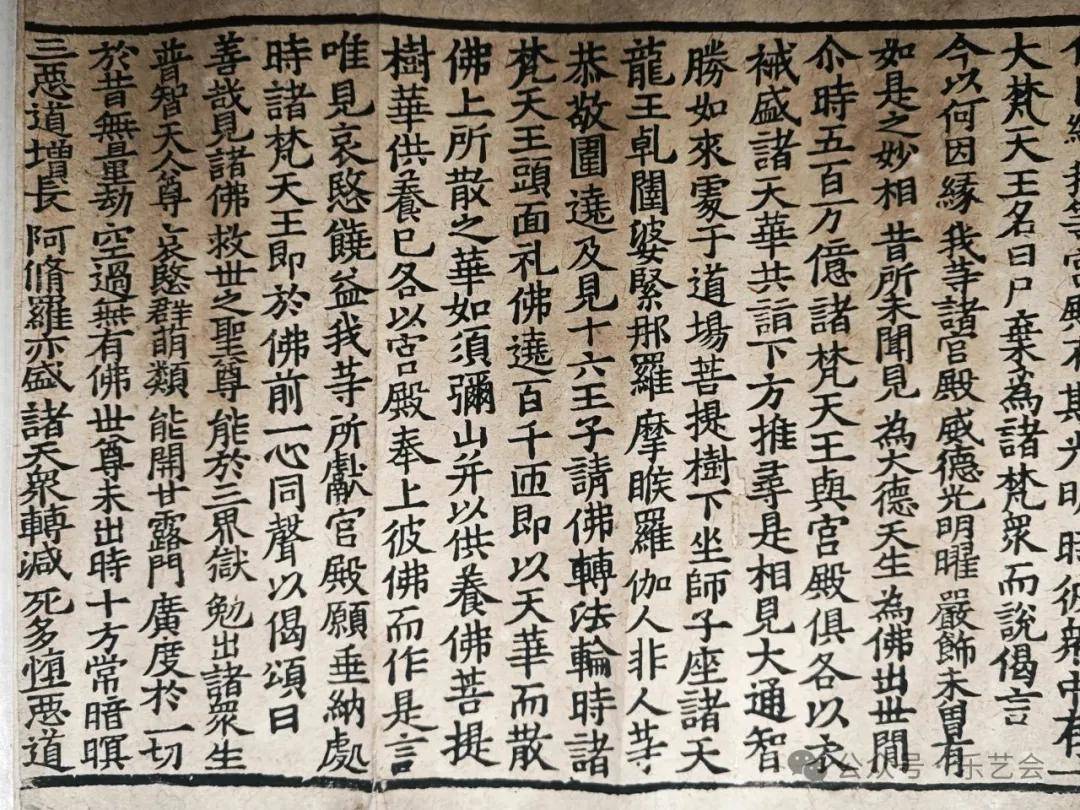 我等宮殿有斯光明時彼衆中有一
大梵天王名曰尸棄為諸梵衆而說偈言
今以何因緣 我等諸宮殿 威德光明曜 嚴飾未曾有
如是之妙相 昔所未聞見 為大德天生 為佛出世間
尒時五百万億諸梵天王與宮殿俱各以衣
裓盛諸天華共詣下方推尋是相見大通智
勝如來處于道場菩提樹下坐師子座諸天
龍王乹闥婆緊那羅摩睺羅伽人非人等
恭敬圍遶及見十六王子請佛轉法輪時諸
梵天王頭面礼佛遶百千匝即以天華而散
佛上所散之華如須彌山并以供養佛菩提
樹華供養已各以宮殿奉上彼佛而作是言
唯見哀愍饒益我等所獻宮殿願垂納處
時諸梵天王即於佛前一心同聲以偈頌曰
善哉見諸佛 救世之聖尊 能於三界獄 勉出諸衆生
普智天人尊 哀愍群萌類 能開甘露門 廣度於一切
於昔無量劫 空過無有佛 世尊未出時 十方常暗暝
三惡道增長 阿脩羅亦盛 諸天衆轉減 死多墮惡道
公众号 乐艺会